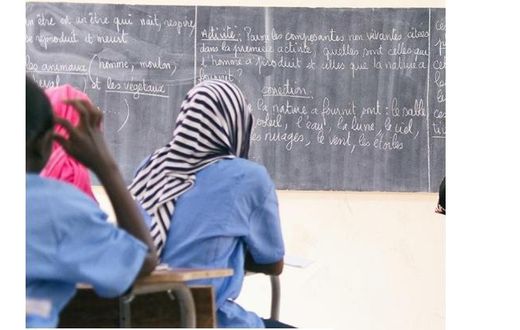 un être est un être qui naît, respire
se reproduit et meurt
les animaux (homme, mouton,
cheval
) et les végétaux
(...)
Activité : Pour les composantes non vivantes citées
dans la première activité, quelles sont celles que
l'homme a produit et celles que la nature a
fournit ?
correction :
la nature a fournit sont : le sable
soleil, l'eau, la lune, le ciel,
les nuages, le vent, les étoiles